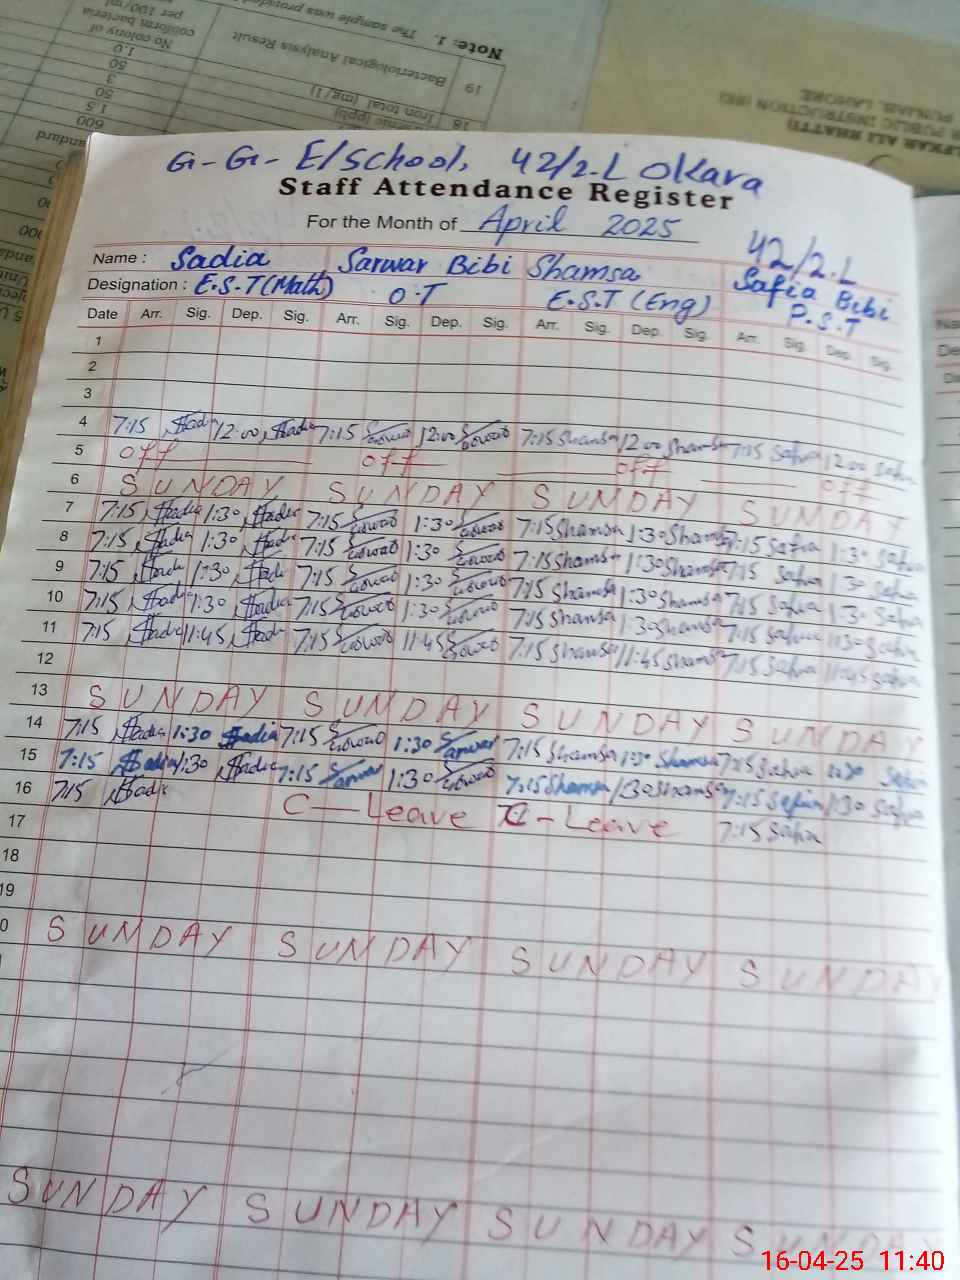 Note: 1. The sample was provided
19 Bacteriological Analysis Result
No colony of
coliform bacteria
per 100/ml
18 Iron total (mg/1)
1.0
50
3
50
1.5
600
PUBLIC INSTRUCTION
PUNJAB, LAHORE
G-G- E/School, 42/2-L Okara
Staff Attendance Register
For the Month of April 2025
42/2.L
Name : Sadia Sarwar Bibi Shamsa Safia Bibi
Designation : E.S.T (Math) O.T E.S.T (Eng) P.S.T
Date Arr. Sig. Dep. Sig. Arr. Sig. Dep. Sig. Arr. Sig. Dep. Sig. Arr. Sig. Dep. Sig.
1
2
3
4 7:15 Sadia 12:00 Sadia 7:15 Sarwar 12:00 Sarwar 7:15 Shamsa 12:00 Shamsa 7:15 Safia 12:00 Safia
5 off off off off
6 SUNDAY SUNDAY SUNDAY SUNDAY
7 7:15 Sadia 1:30 Sadia 7:15 Sarwar 1:30 Sarwar 7:15 Shamsa 1:30 Shamsa 7:15 Safia 1:30 Safia
8 7:15 Sadia 1:30 Sadia 7:15 Sarwar 1:30 Sarwar 7:15 Shamsa 1:30 Shamsa 7:15 Safia 1:30 Safia
9 7:15 Sadia 1:30 Sadia 7:15 Sarwar 1:30 Sarwar 7:15 Shamsa 1:30 Shamsa 7:15 Safia 1:30 Safia
10 7:15 Sadia 1:30 Sadia 7:15 Sarwar 1:30 Sarwar 7:15 Shamsa 1:30 Shamsa 7:15 Safia 1:30 Safia
11 7:15 Sadia 11:45 Sadia 7:15 Sarwar 11:45 Sarwar 7:15 Shamsa 11:45 Shamsa 7:15 Safia 11:45 Safia
12
13 SUNDAY SUNDAY SUNDAY SUNDAY
14 7:15 Sadia 1:30 Sadia 7:15 Sarwar 1:30 Sarwar 7:15 Shamsa 1:30 Shamsa 7:15 Safia 1:30 Safia
15 7:15 Sadia 1:30 Sadia 7:15 Sarwar 1:30 Sarwar 7:15 Shamsa 1:30 Shamsa 7:15 Safia 1:30 Safia
16 7:15 Sadia C-Leave C-Leave 7:15 Safia
17
18
19
0 SUNDAY SUNDAY SUNDAY SUNDAY
SUNDAY SUNDAY SUNDAY SUNDAY
16-04-25 11:40